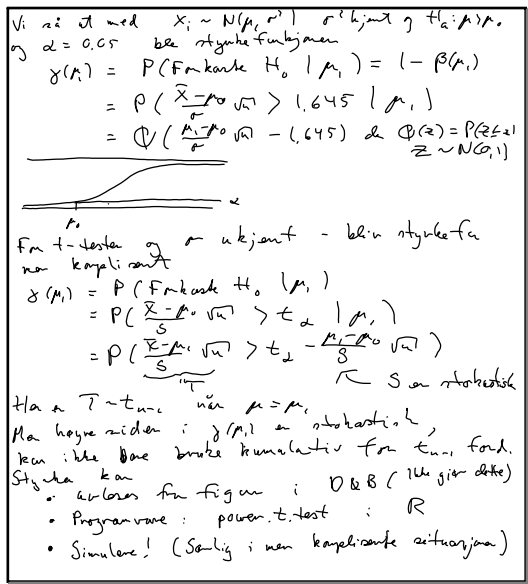 Vi så at med X_i ~ N(μ, σ²) σ² kjent og H_a: μ>μ_0
og α = 0.05 ble styrkefunksjonen
γ(μ_1) = P(Forkaste H_0 | μ_1) = 1 - β(μ_1)
= P( (X̄-μ_0)/σ √n > 1.645 | μ_1 )
= Φ( (μ_1-μ_0)/σ √n - 1.645) der Φ(z) = P(Z≤z)
Z ~ N(0,1)
α
μ_0
For t-tester og σ ukjent - blir styrkefu
mer komplisert
γ(μ_1) = P(Forkaste H_0 | μ_1)
= P( (X̄-μ_0)/S √n > t_α | μ_1 )
= P( (X̄-μ_1)/S √n > t_α - (μ_1-μ_0)/S √n )
"T
S er stokastisk
Her er T ~ t_{n-1} når μ = μ_1
Men høyre siden i γ(μ_1) er stokastisk,
kan ikke bare bruke kumulativ for t_{n-1} ford.
Styrke kan
• avleses fra figur i D&B (ikke gjør dette)
• Programvare: power.t.test i R
• Simulere! (Særlig i mer kompliserte situasjoner)